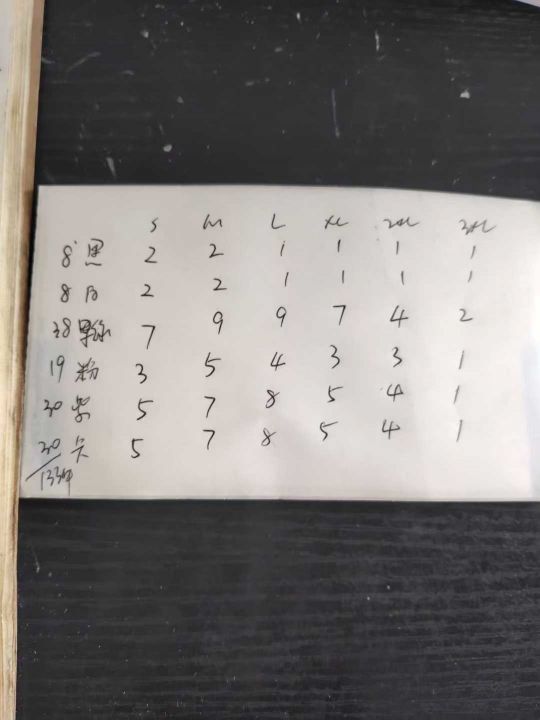 S M L XL 2XL 3XL
8 黑 2 2 1 1 1 1
8 白 2 2 1 1 1 1
38 7 9 9 7 4 2
19 粉 3 5 4 3 3 1
30 紫 5 7 8 5 4 1
30 卡 5 7 8 5 4 1
133件